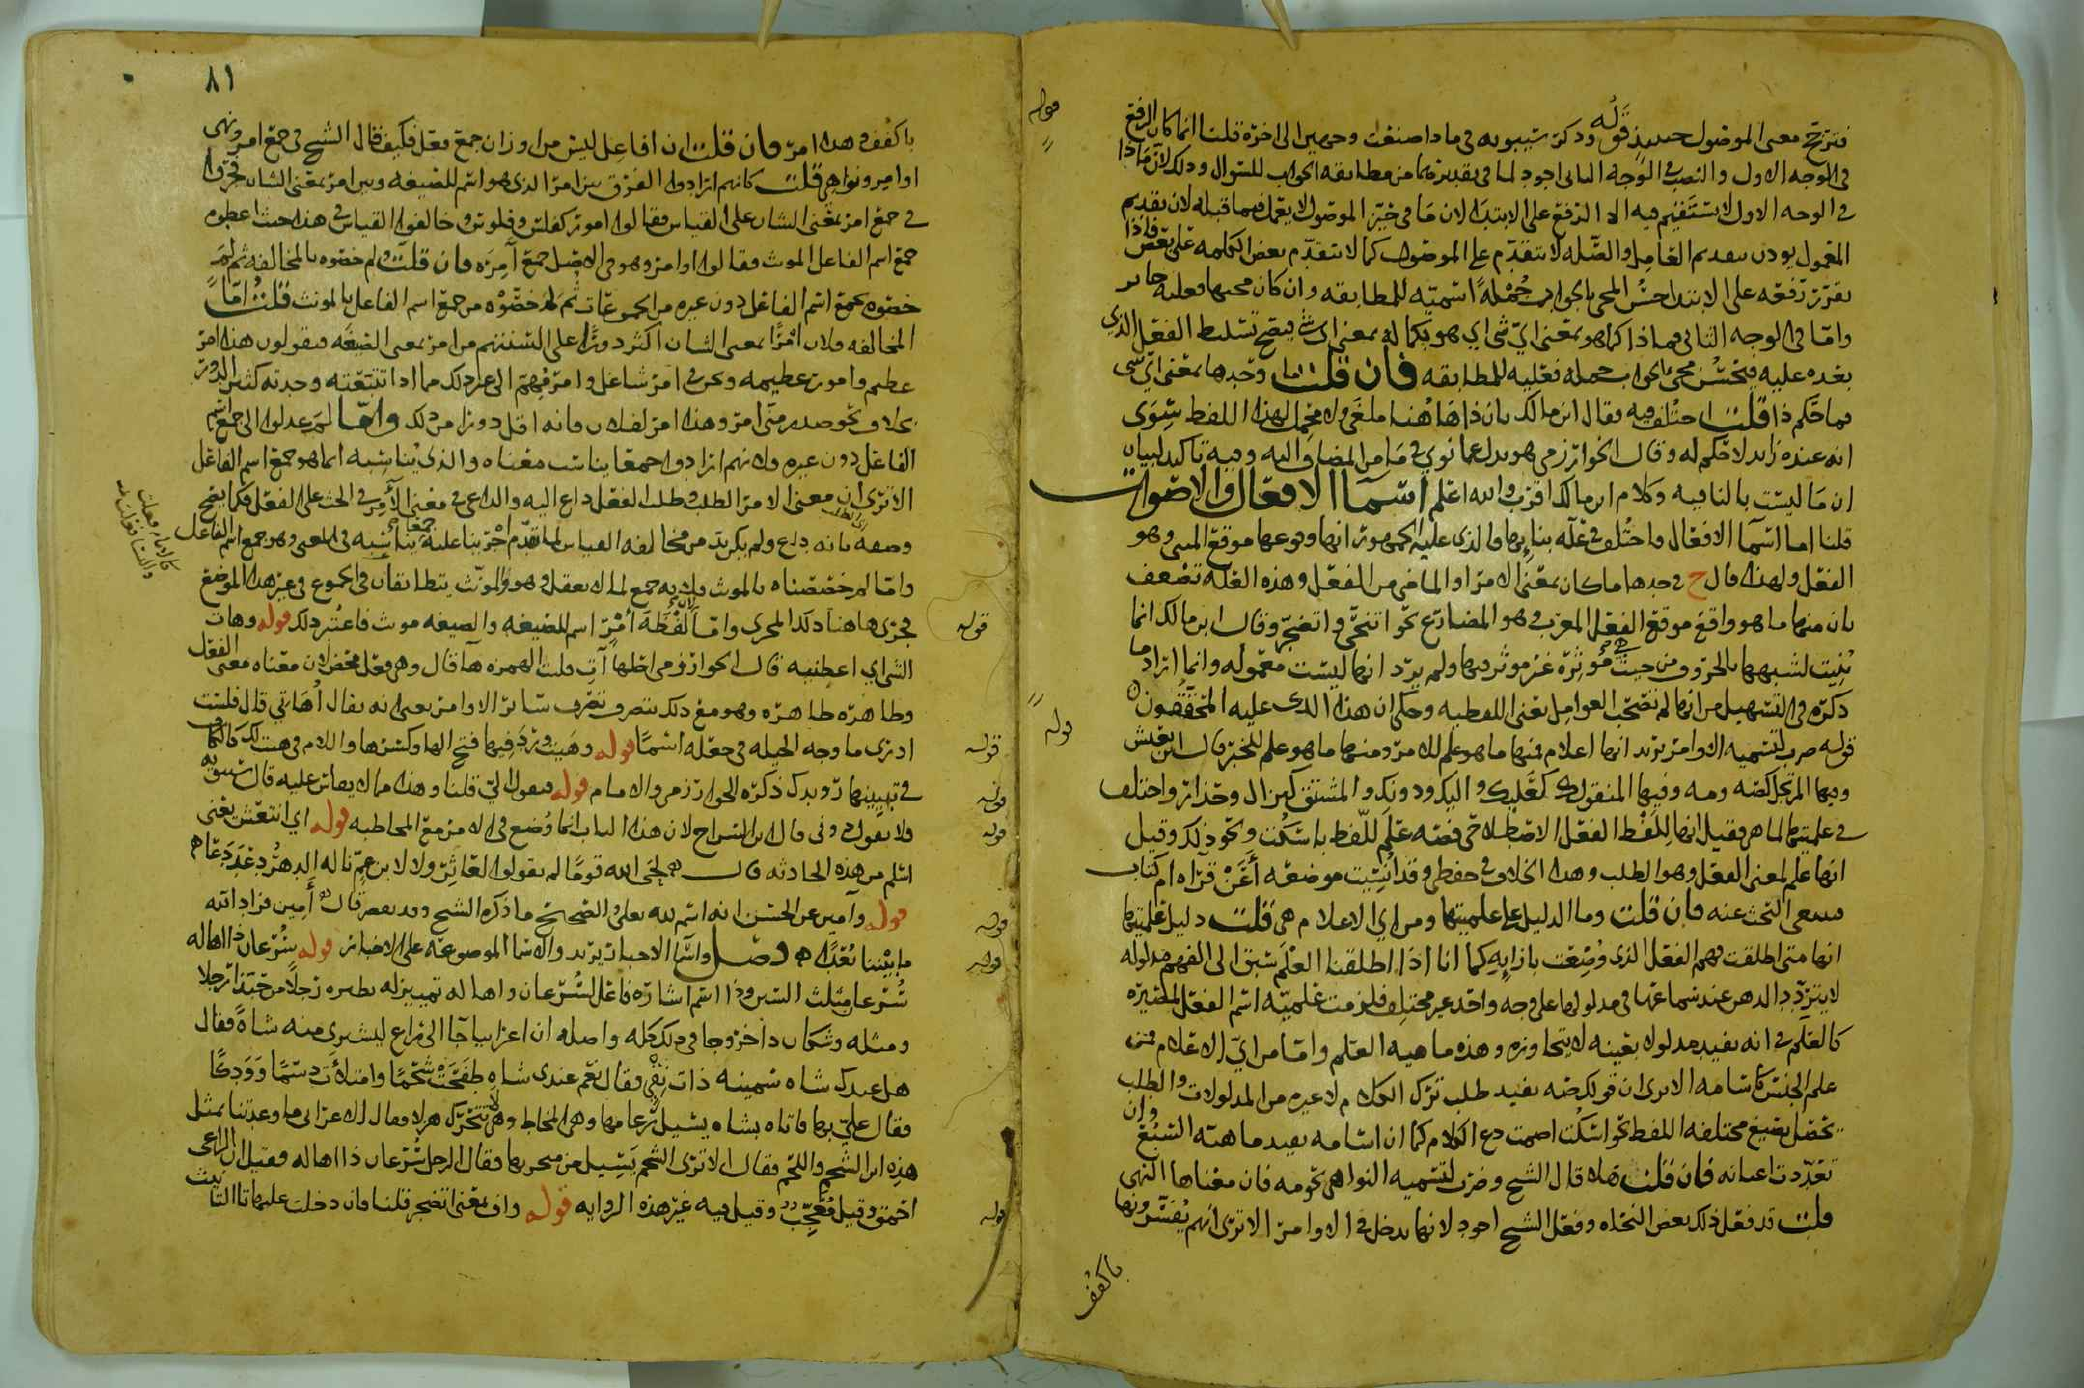 معنى الموصول حينئذ قوله وذكر سيبويه في ماذا صنعت وجهين الى اخره قلنا انما كان الرفع
في الوجه الاول والنصب في الوجه الثاني اجود لما في تقديره من مطابقه الجواب للسوال وذلك لان ماذا
في الوجه الاول لا يستقيم فيه الا الرفع على الابتداء لان ما في خبر الموصول لا يعمل فيما قبله لان تقديم
المعمول يوذن بتقديم العامل والصله لا تتقدم على الموصول كما لا تتقدم بعض الكلمه على بعض فاذا
تقرر رفعه على الابتداء حسن المجي بالجواب جمله اسميه للمطابقه وان كان مجيها فعليه جايز
واما في الوجه الثاني فماذا كما هو بمعنى اي شي اي هو بكماله بمعنى اي شي فيصح تسليط الفعل الذي
بعده عليه فيحسن مجي الجواب جمله فعليه للمطابقه فان قلت اما وحدها بمعنى اي شي
فما حكم ذا قلت اختلف فيه فقال ابن مالك بان ذا هاهنا ملغى ولا محمل لهذا اللفظ سوى
انه عنده زايد لا حكم له وقال الخوارزمي هو بدل عما نوي في ما من المضاف اليه وفيه تاكيد لبيان
ان ما ليست بالنافيه وكلام ابن مالك اقرب والله اعلم اسما الافعال والاصوات
قلنا اما اسما الافعال فاختلف في علة بنايها فالذي عليه الجمهور انها وقوعها موقع المبني وهو
الفعل ولهذا قال ح في حدها ما كان بمعنى الامر او الماضي من الفعل وهذه العله تضعف
بان منها ما هو واقع موقع الفعل المعرب وهو المضارع نحو اتنحى واتضجر وقال ابن مالك انما
بنيت لشبهها بالحروف من حيث هي موثرة غير موثر فيها ولم يرد انها ليست معموله وانما اراد ما
ذكره في التسهيل من انها لم تصحب العوامل يعني اللفظيه وحكى ان هذا الذي عليه المحققون
قوله ضرب لتسميه الاوامر يريد انها اعلام فمنها ما هو علم للامر ومنها ما هو علم للخبر قال ابن يعيش
وفيها المرتجل كصه ومه وفيها المنقول كعليك واليك ودونك والمشتق كنزال وحذار واختلف
في علميتها لماهي فقيل انها للفظ الفعل الاصطلاحي فصه علم للفظ باسكت ونحو ذلك وقيل
انها علم لمعنى الفعل وهو الطلب وهذا الخلاف في حفظي وقد انسيت موضعه أعن قراه ام كتاب
فينبغي البحث عنه فان قلت وما الدليل على علميتها ومن اي الاعلام هي قلت دليل علميتها
انها متى اطلقت فهم الفعل الذي وضعت بازايه كما انا اذا اطلقنا العلم سبق الى الفهم مدلوله
لا يتردد الذهن عند سماعها في مدلولها على وجه واحد غير مختلف فلزمت علميته اسم الفعل
كالعلم في انه يفيد مدلولا بعينه لا يتجاوزه وهذه ماهيه العلم واما من اي الاعلام فمن
علم الجنس كاسامه الا ترى ان قولك صه يفيد طلب ترك الكلام لا غيره من المدلولات والطلب
يحصل بصيغ مختلفه اللفظ نحو اسكت اصمت دع الكلام كما ان اسامه يفيد ماهية السبع وان
تعددت اعيانه فان قلت هلا قال الشيخ وضرب لتسميه النواهي نحو مه فان معناها النهي
قلت قد فعل ذلك بعض النحاه وفعل الشيخ اجود لانها تدخل في الاوامر الا ترى انهم يفسرونها
باكفف
قوله
قوله
٨١
باكفف وهذا امر فان قلت ان افاعل ليس من اوزان جمع فعل فكيف قال الشيخ في جمع امر ونهي
اوامر ونواهي قلت كانهم ارادوا الفرق بين امر الذي هو اسم للصيغه وبين امر بمعنى الشان فجروا
في جمع امر بمعنى الشان على القياس فقالوا امور كفلس وفلوس وخالفوا القياس في هذا حيث اعطوه
جمع اسم الفاعل الموث فقالوا اوامر وهو في الاصل جمع آمره فان قلت ولم خصوه بالمخالفه ثم لم
خصوه بجمع اسم الفاعل دون غيره من الجموعات ثم لم خصوه من جمع اسم الفاعل بالمونث قلت اما
المخالفه فلان امرا بمعنى الشان اكثر دورا على السنتهم من امر بمعنى الصيغه فيقولون هذا امر
عظيم وامور عظيمه ونحن في امر شاغل وامر مهم الى غير ذلك مما اذا تتبعته وجدته كثير الدور
بخلاف نحو صدر مني امر وهذا امر لفلان فانه اقل دورا من ذلك واما لم عدلوا الى جمع اسم
الفاعل دون غيره فلانهم ارادوا جمعا يناسب معناه والذي يناسبه انما هو جمع اسم الفاعل
الا ترى ان معنى الامر الطلب وطلب الفعل داع اليه والداعي في معنى الآمر في الحث على الفعل فكما يصح
وصفه بانه داع ولم يكن بد من مخالفه القياس لما تقدم اجرينا عليه جمعا يناسبه في المعنى وهو جمع اسم الفاعل
واما لم خصصناه بالموث فلانه جمع لما لا يعقل وهو والموث يتطابقان في الجموع في غير هذا الموضع
فجرى هاهنا ذلك المجرى واما لان لفظة امر اسم للصيغه والصيغه موث فاعتبر ذلك قوله وهات
الشي اي اعطنيه قال الخوارزمي اصلها آت قلبت الهمزه ها قال وهي فعل محض لان معناه معنى الفعل
وظاهره ظاهره وهو مع ذلك يتصرف تصرف ساير الاوامر يعني انه يقال أهاتي قال فلست
ادري ما وجه الحيله في جعله اسما قوله وهيت ورد فيها فتح الها وكسرها واللام في هيت لك كالكاف
في تبيينها رويدك ذكره الخوارزمي والامام قوله فيقول الي قلنا وهذا مما لا يقاس عليه قال سيبويه
فلا يقول دوني قال ابن السراج لان هذا الباب انما وضع في الامر مع المخاطبه قوله اي انتعش يعني
اسلم من هذه الحادثه قال لحى الله قوما لم يقولوا لعاثر ولا لابن عم ناله الدهر دعدعا
قوله وآمين عن الحسن انه اسم لله تعالى والصحيح ما ذكره الشيخ وقد يقصر قال أمين فزاد الله
ما بيننا بعدا فصل واسما الاخبار يريد والاسما الموضوعه على الاخبار قوله سرعان ذا اهاله
سرعان مثلث السين وذا اسم اشاره فاعل لسرعان واهاله تمييز له نظيره رجلا من حبذا رجلا
ومثله وشكان ذا خروجا في ذلك كله واصله ان اعرابيا جا الى راع ليشتري منه شاة فقال
هل عندك شاه سمينه ذات نقي فقال نعم عندي شاه طفحت شحما وامتلأت دسما وودكا
فقال علي بها فاتاه بشاه يسيل رعامها وهي المخاط وهي لا تتحرك هزلا فقال الاعرابي ما وعدتنا بمثل
هذه اين الشحم واللحم فقال الا ترى الشحم يسيل من منخريها فقال الرجل سرعان ذا اهاله وقيل ان الراعي
احمق وقيل معجب وقيل فيه غير هذه الروايه قوله واف بمعنى اتضجر قلنا فان دخلت عليها تا التانيث
قوله
قوله
قوله
قوله
قوله
قوله
قوله